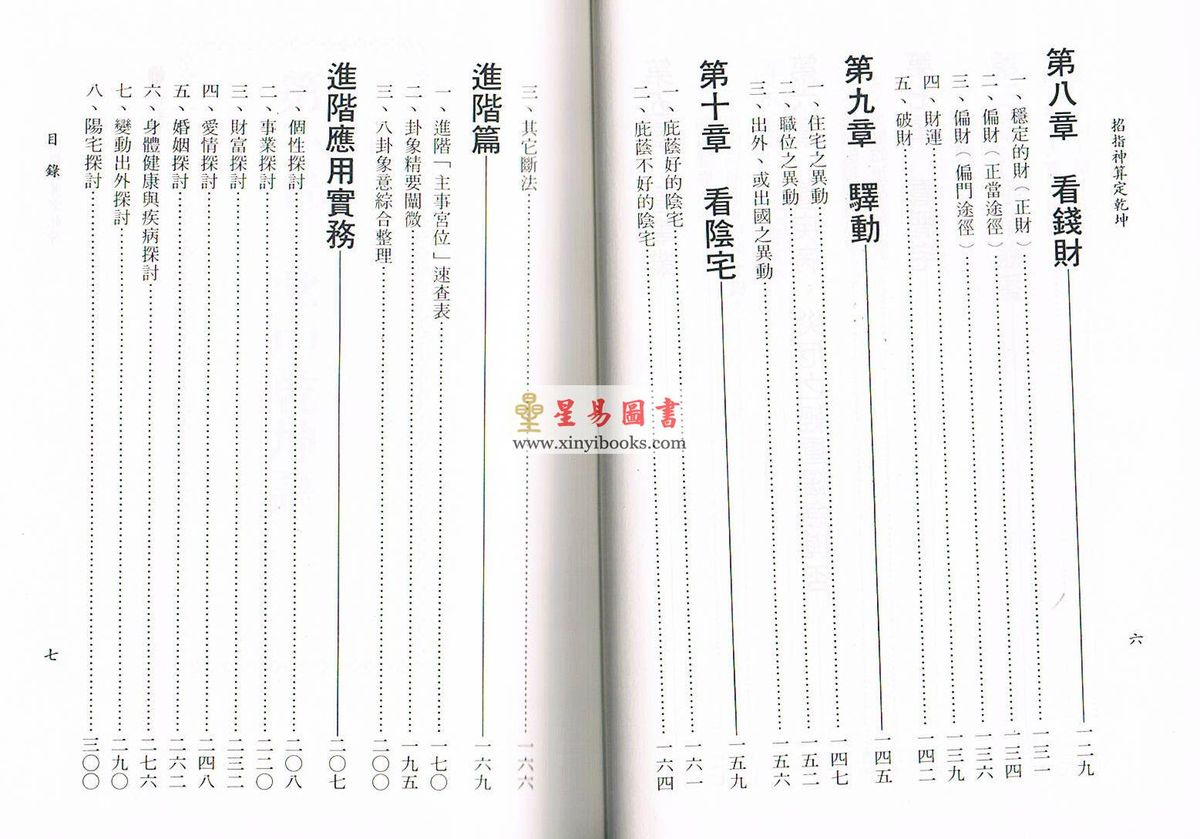 招指神算定乾坤
六
第八章 看錢財 一二九
一、穩定的財（正財） 一三一
二、偏財（正當途徑） 一三四
三、偏財（偏門途徑） 一三六
四、財運 一三九
五、破財 一四二
第九章 驛動 一四五
一、住宅之異動 一四七
二、職位之異動 一五二
三、出外、或出國之異動 一五六
第十章 看陰宅 一五九
一、庇蔭好的陰宅 一六一
二、庇蔭不好的陰宅 一六四
星易圖書
www.xinyibooks.com
三、其它斷法 一六六
進階篇 一六九
一、進階「主事宮位」速查表 一七〇
二、卦象精要闡微 一九五
三、八卦象意綜合整理 二〇〇
進階應用實務 二〇七
一、個性探討 二〇八
二、事業探討 二二〇
三、財富探討 二三二
四、愛情探討 二四八
五、婚姻探討 二六二
六、身體健康與疾病探討 二七六
七、變動出外探討 二九〇
八、陽宅探討 三〇〇
目錄
七